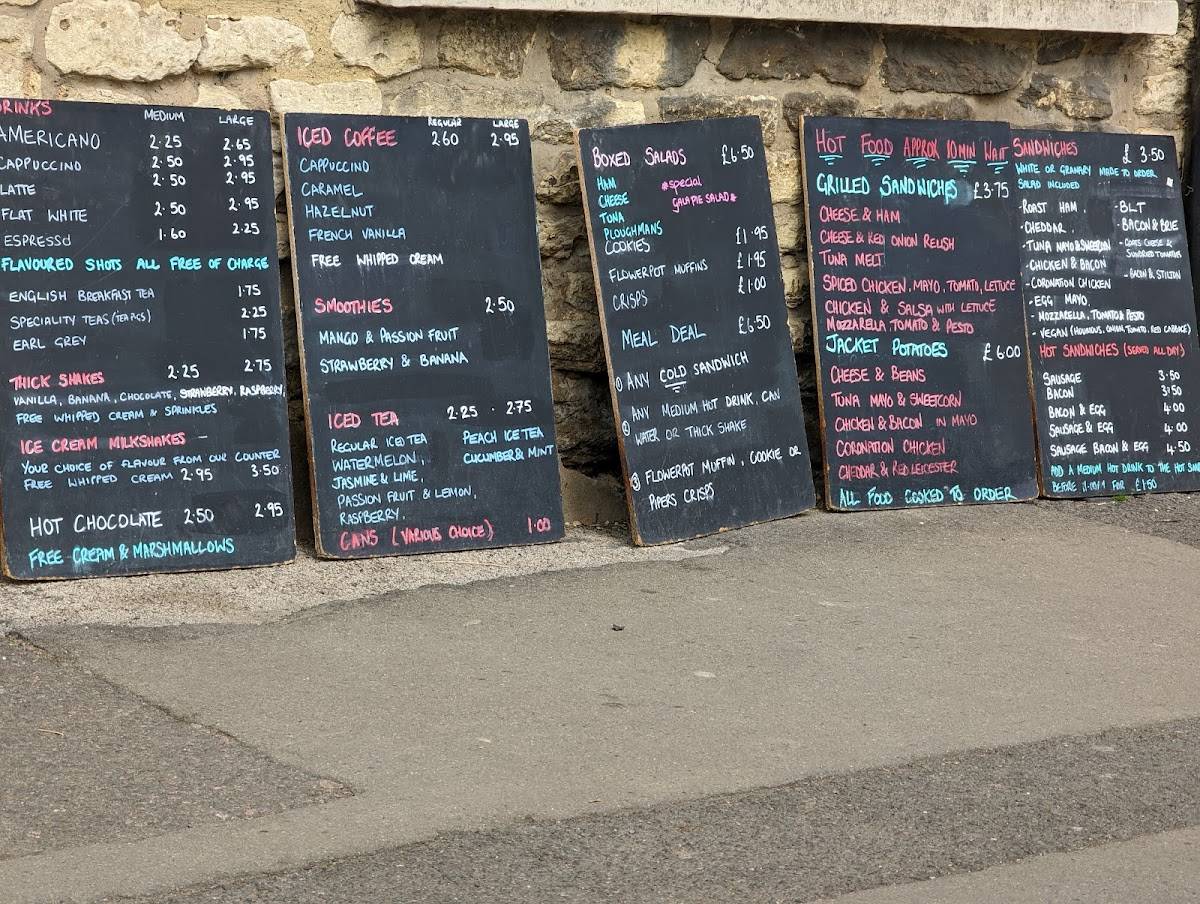 DRINKS MEDIUM LARGE
AMERICANO 2.25 2.65
CAPPUCCINO 2.50 2.95
LATTE 2.50 2.95
FLAT WHITE 2.50 2.95
ESPRESSO 1.60 2.25
FLAVOURED SHOTS ALL FREE OF CHARGE
ENGLISH BREAKFAST TEA 1.75
SPECIALITY TEAS (TEA PIGS) 2.25
EARL GREY 1.75
THICK SHAKES 2.25 2.75
VANILLA, BANANA, CHOCOLATE, STRAWBERRY, RASPBERRY
FREE WHIPPED CREAM & SPRINKLES
ICE CREAM MILKSHAKES -
YOUR CHOICE OF FLAVOUR FROM OUR COUNTER
FREE WHIPPED CREAM 2.95 3.50
HOT CHOCOLATE 2.50 2.95
FREE CREAM & MARSHMALLOWS
ICED COFFEE REGULAR 2.60 LARGE 2.95
CAPPUCCINO
CARAMEL
HAZELNUT
FRENCH VANILLA
FREE WHIPPED CREAM
SMOOTHIES 2.50
MANGO & PASSION FRUIT
STRAWBERRY & BANANA
ICED TEA 2.25 . 2.75
REGULAR ICED TEA PEACH ICE TEA
WATERMELON, CUCUMBER & MINT
JASMINE & LIME,
PASSION FRUIT & LEMON,
RASPBERRY,
CANS (VARIOUS CHOICE) 1.00
BOXED SALADS £6.50
HAM *special
CHEESE GALA PIE SALAD*
TUNA
PLOUGHMANS
COOKIES £1.95
FLOWERPOT MUFFINS £1.95
CRISPS £1.00
MEAL DEAL £6.50
① ANY COLD SANDWICH
② ANY MEDIUM HOT DRINK, CAN
WATER OR THICK SHAKE
③ FLOWERPOT MUFFIN, COOKIE OR
PIPERS CRISPS
HOT FOOD APPROX 10 MIN WAIT
GRILLED SANDWICHES £3.75
CHEESE & HAM
CHEESE & RED ONION RELISH
TUNA MELT
SPICED CHICKEN, MAYO, TOMATO, LETTUCE
CHICKEN & SALSA WITH LETTUCE
MOZZARELLA, TOMATO & PESTO
JACKET POTATOES £6.00
CHEESE & BEANS
TUNA MAYO & SWEETCORN
CHICKEN & BACON IN MAYO
CORONATION CHICKEN
CHEDDAR & RED LEICESTER
ALL FOOD COOKED TO ORDER
SANDWICHES £3.50
WHITE OR GRANARY MADE TO ORDER
SALAD INCLUDED
- ROAST HAM. - BLT
- CHEDDAR. - BACON & BRIE
- TUNA MAYO & SWEETCORN - GOATS CHEESE &
SUNDRIED TOMATOES
- CHICKEN & BACON - BACON & STILTON
- CORONATION CHICKEN
- EGG MAYO.
- MOZZARELLA, TOMATO & PESTO
- VEGAN (HOUMOUS, ONION TOMATO, RED CABBAGE)
HOT SANDWICHES (SERVED ALL DAY)
SAUSAGE 3.50
BACON 3.50
BACON & EGG 4.00
SAUSAGE & EGG 4.00
SAUSAGE BACON & EGG 4.50
ADD A MEDIUM HOT DRINK TO THE HOT
BEFORE FOR £1.50